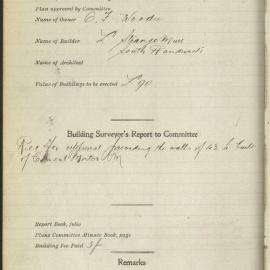 Plan approved by Committee
Name of Owner C. F. Woods
Name of Builder L Strange
South Randwick
Name of Architect
Value of Buildings to be erected £90
Building Surveyor's Report to Committee
Rec for approval providing the walls of 43 to built
of Cement Mortar
Report Book, folio
Plans Committee Minute Book, page
Building Fee Paid 5/-
Remarks